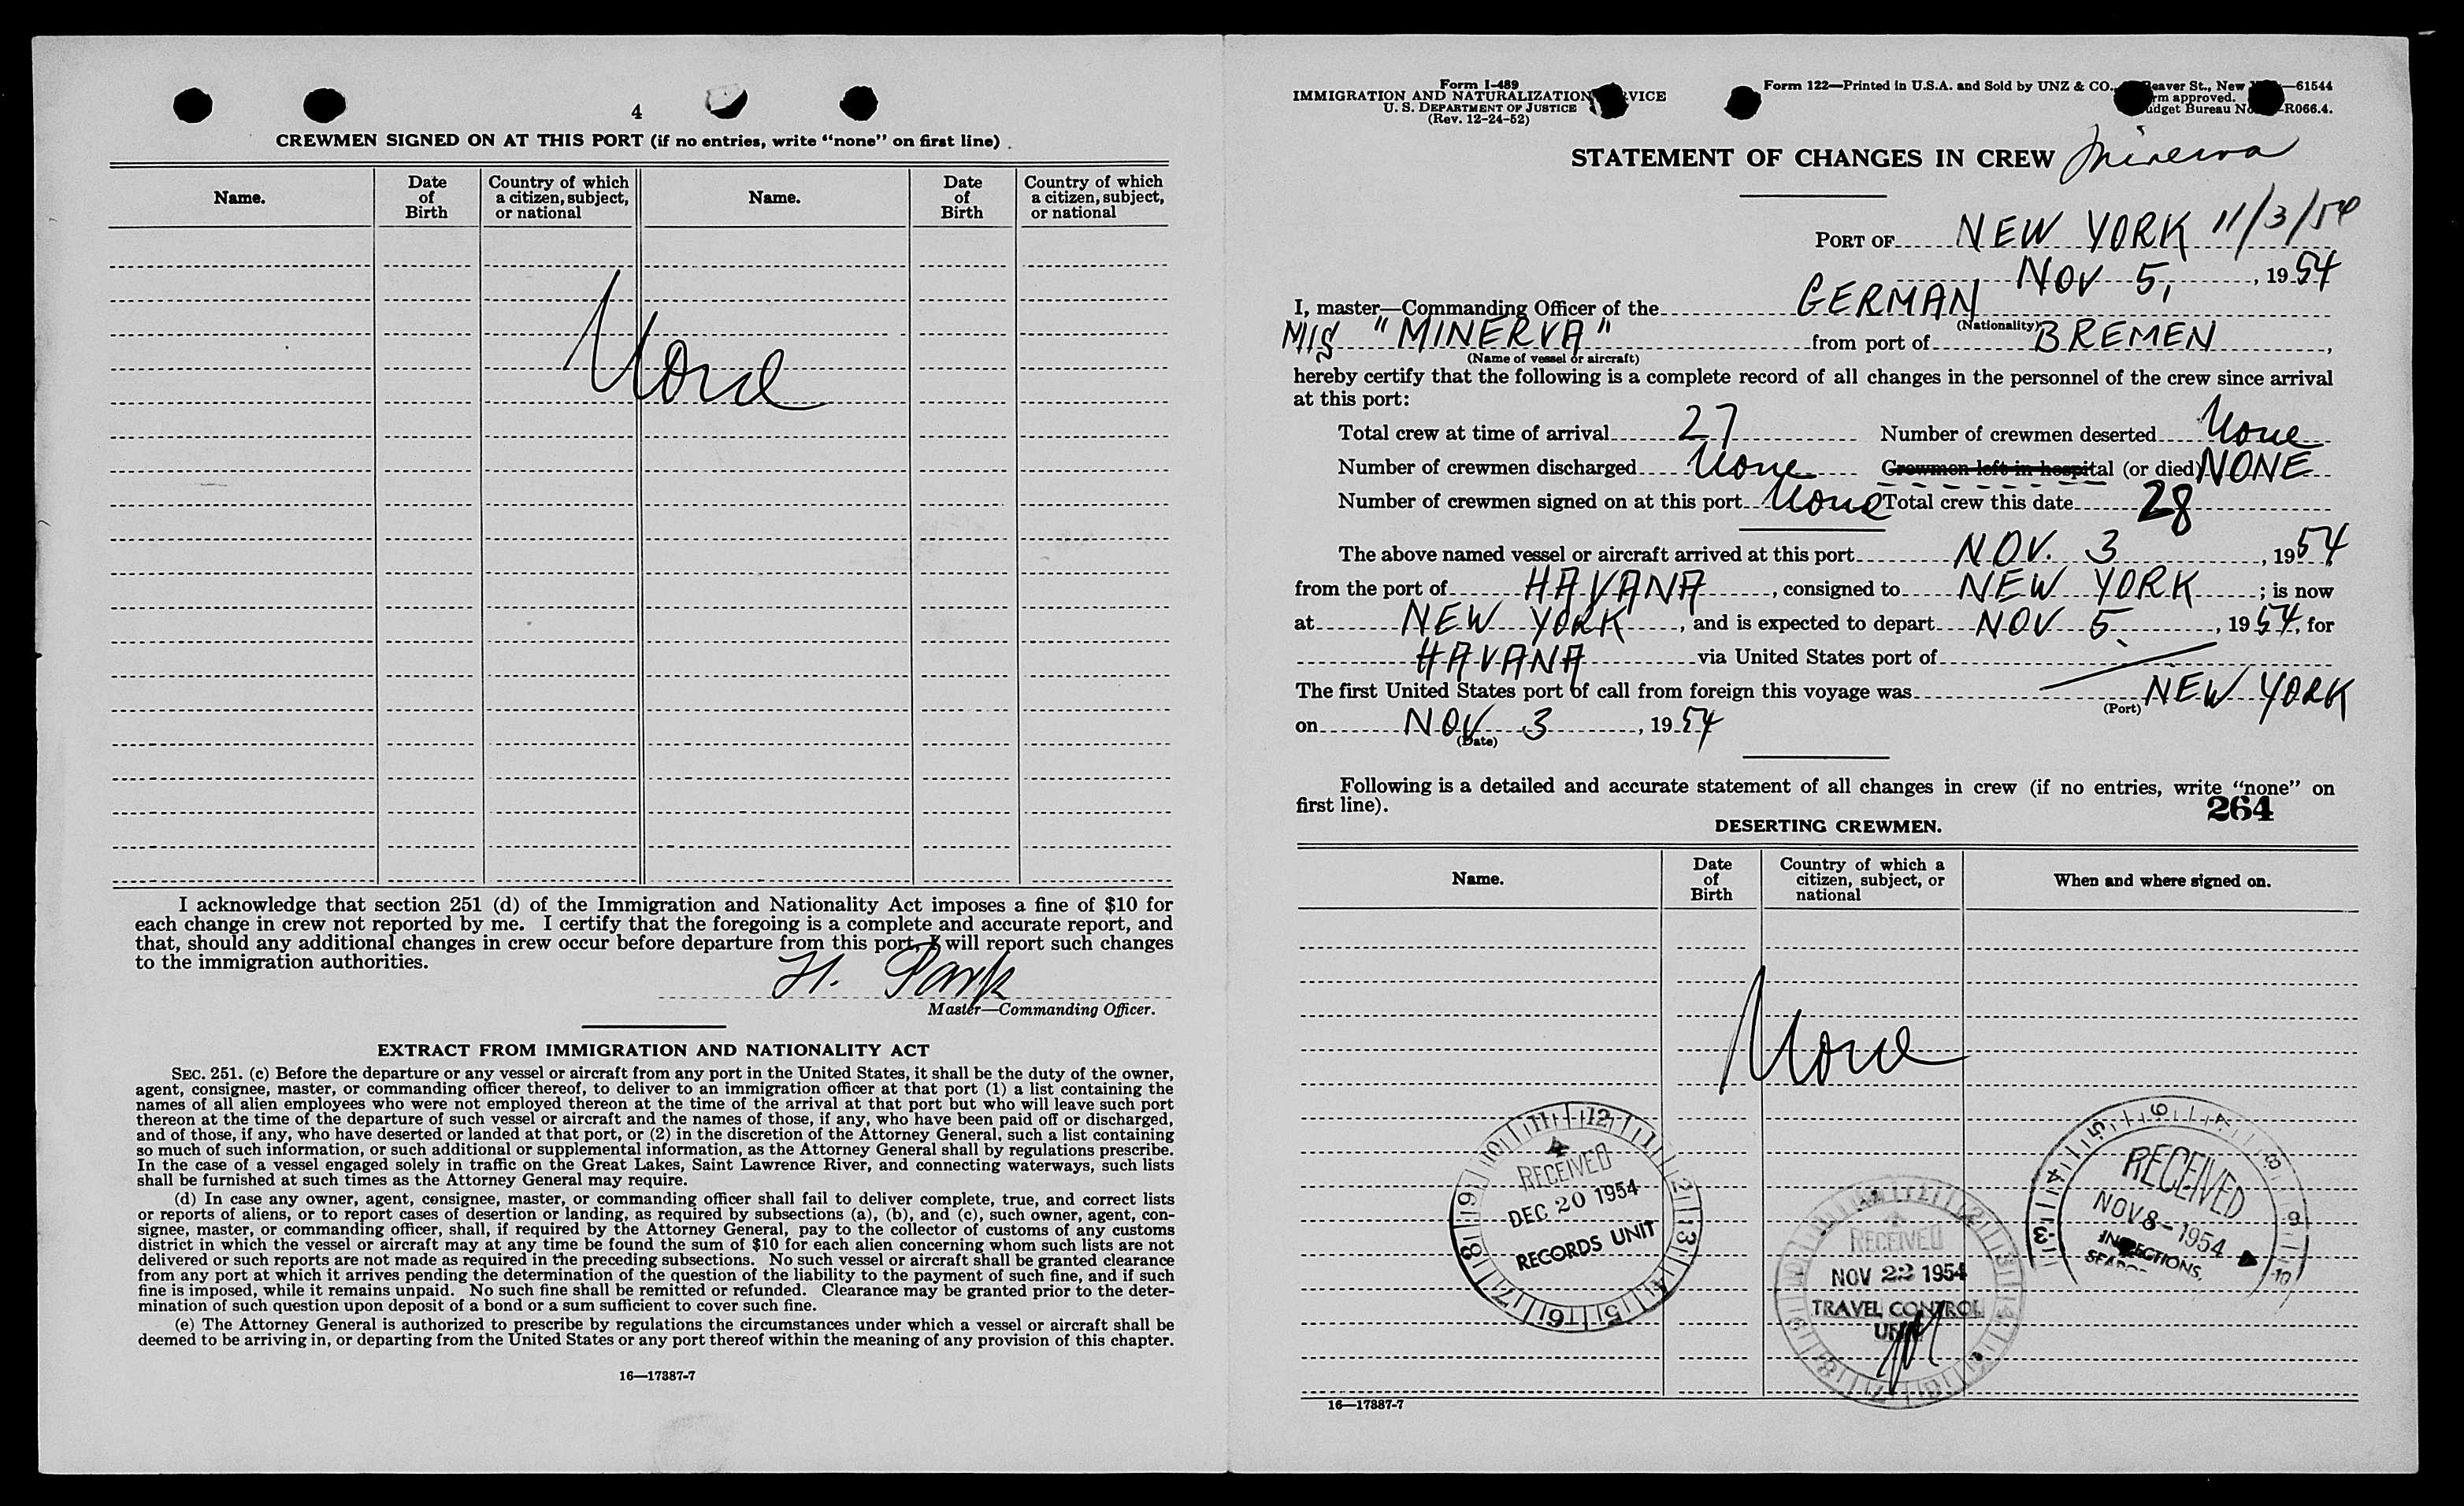 4
CREWMEN SIGNED ON AT THIS PORT (if no entries, write "none" on first line)
Name.
Date
of
Birth
Country of which
a citizen, subject,
or national
Name.
Date
of
Birth
Country of which
a citizen, subject,
or national
None
I acknowledge that section 251 (d) of the Immigration and Nationality Act imposes a fine of $10 for
each change in crew not reported by me. I certify that the foregoing is a complete and accurate report, and
that, should any additional changes in crew occur before departure from this port, I will report such changes
to the immigration authorities.
H.
Master—Commanding Officer.
EXTRACT FROM IMMIGRATION AND NATIONALITY ACT
SEC. 251. (c) Before the departure or any vessel or aircraft from any port in the United States, it shall be the duty of the owner,
agent, consignee, master, or commanding officer thereof, to deliver to an immigration officer at that port (1) a list containing the
names of all alien employees who were not employed thereon at the time of the arrival at that port but who will leave such port
thereon at the time of the departure of such vessel or aircraft and the names of those, if any, who have been paid off or discharged,
and of those, if any, who have deserted or landed at that port, or (2) in the discretion of the Attorney General, such a list containing
so much of such information, or such additional or supplemental information, as the Attorney General shall by regulations prescribe.
In the case of a vessel engaged solely in traffic on the Great Lakes, Saint Lawrence River, and connecting waterways, such lists
shall be furnished at such times as the Attorney General may require.
(d) In case any owner, agent, consignee, master, or commanding officer shall fail to deliver complete, true, and correct lists
or reports of aliens, or to report cases of desertion or landing, as required by subsections (a), (b), and (c), such owner, agent, con-
signee, master, or commanding officer, shall, if required by the Attorney General, pay to the collector of customs of any customs
district in which the vessel or aircraft may at any time be found the sum of $10 for each alien concerning whom such lists are not
delivered or such reports are not made as required in the preceding subsections. No such vessel or aircraft shall be granted clearance
from any port at which it arrives pending the determination of the question of the liability to the payment of such fine, and if such
fine is imposed, while it remains unpaid. No such fine shall be remitted or refunded. Clearance may be granted prior to the deter-
mination of such question upon deposit of a bond or a sum sufficient to cover such fine.
(e) The Attorney General is authorized to prescribe by regulations the circumstances under which a vessel or aircraft shall be
deemed to be arriving in, or departing from the United States or any port thereof within the meaning of any provision of this chapter.
16—17887-7
Form I-489
IMMIGRATION AND NATURALIZATION RVICE
U. S. DEPARTMENT OF JUSTICE
(Rev. 12-24-52)
Form 122—Printed in U.S.A. and Sold by UNZ & CO., eaver St., New —61544
rm approved.
udget Bureau No. -R066.4.
STATEMENT OF CHANGES IN CREW Minerva
PORT OF NEW YORK 11/3/54
NOV 5, , 1954
I, master—Commanding Officer of the GERMAN
(Nationality)
M/S "MINERVA" from port of BREMEN ,
(Name of vessel or aircraft)
hereby certify that the following is a complete record of all changes in the personnel of the crew since arrival
at this port:
Total crew at time of arrival 27 Number of crewmen deserted None
Number of crewmen discharged None Crewmen left in hospital (or died) NONE
Number of crewmen signed on at this port None Total crew this date 28
The above named vessel or aircraft arrived at this port NOV. 3 , 1954
from the port of HAVANA , consigned to NEW YORK ; is now
at NEW YORK , and is expected to depart NOV 5 , 1954, for
HAVANA via United States port of
The first United States port of call from foreign this voyage was NEW YORK
(Port)
on NOV 3 , 1954
(Date)
Following is a detailed and accurate statement of all changes in crew (if no entries, write "none" on
first line).
264
DESERTING CREWMEN.
Name.
Date
of
Birth
Country of which a
citizen, subject, or
national
When and where signed on.
None
RECEIVED
DEC 20 1954
RECORDS UNIT
RECEIVED
NOV 22 1954
TRAVEL CONTROL
UNIT
RECEIVED
NOV 8-1954
INSPECTIONS,
16—17887-7